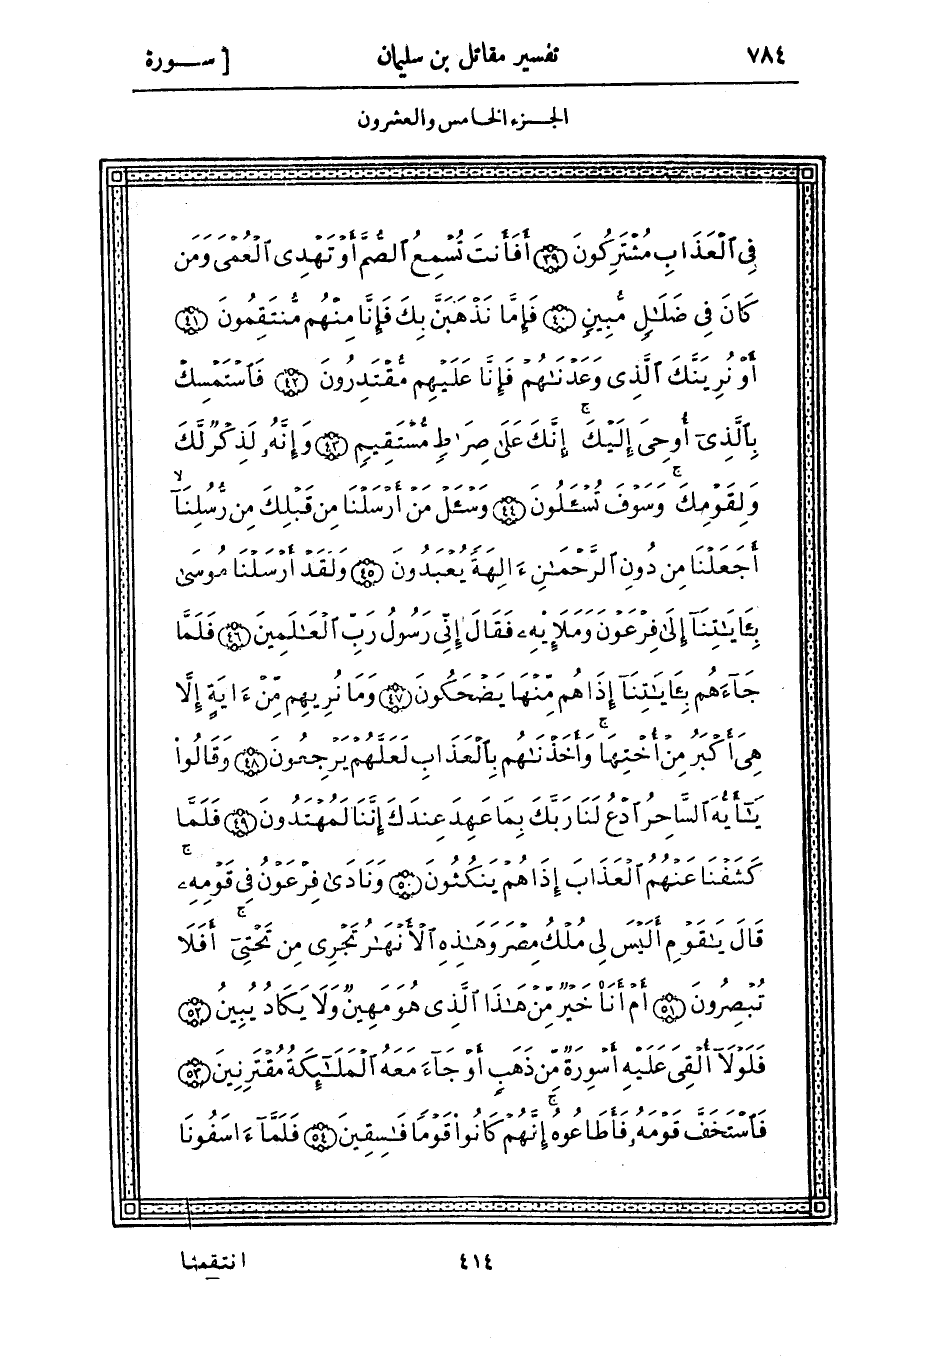 ٧٨٤ تفسير مقاتل بن سليمان [ ســورة
الجـزء الخامس والعشرون
فِى ٱلْعَذَابِ مُشْتَرِكُونَ ﴿٣٩﴾ أَفَأَنتَ تُسْمِعُ ٱلصُّمَّ أَوْ تَهْدِى ٱلْعُمْىَ وَمَن
كَانَ فِى ضَلَـٰلٍ مُّبِينٍ ﴿٤٠﴾ فَإِمَّا نَذْهَبَنَّ بِكَ فَإِنَّا مِنْهُم مُّنتَقِمُونَ ﴿٤١﴾
أَوْ نُرِيَنَّكَ ٱلَّذِى وَعَدْنَـٰهُمْ فَإِنَّا عَلَيْهِم مُّقْتَدِرُونَ ﴿٤٢﴾ فَٱسْتَمْسِكْ
بِٱلَّذِىٓ أُوحِىَ إِلَيْكَ ۚ إِنَّكَ عَلَىٰ صِرَٰطٍ مُّسْتَقِيمٍ ﴿٤٣﴾ وَإِنَّهُۥ لَذِكْرٌ لَّكَ
وَلِقَوْمِكَ ۚ وَسَوْفَ تُسْـَٔلُونَ ﴿٤٤﴾ وَسْـَٔلْ مَنْ أَرْسَلْنَا مِن قَبْلِكَ مِن رُّسُلِنَآ ۙ
أَجَعَلْنَا مِن دُونِ ٱلرَّحْمَـٰنِ ءَالِهَةً يُعْبَدُونَ ﴿٤٥﴾ وَلَقَدْ أَرْسَلْنَا مُوسَىٰ
بِـَٔايَـٰتِنَآ إِلَىٰ فِرْعَوْنَ وَمَلَإِيْهِۦ فَقَالَ إِنِّى رَسُولُ رَبِّ ٱلْعَـٰلَمِينَ ﴿٤٦﴾ فَلَمَّا
جَآءَهُم بِـَٔايَـٰتِنَآ إِذَا هُم مِّنْهَا يَضْحَكُونَ ﴿٤٧﴾ وَمَا نُرِيهِم مِّنْ ءَايَةٍ إِلَّا
هِىَ أَكْبَرُ مِنْ أُخْتِهَا ۖ وَأَخَذْنَـٰهُم بِٱلْعَذَابِ لَعَلَّهُمْ يَرْجِعُونَ ﴿٤٨﴾ وَقَالُوا۟
يَـٰٓأَيُّهَ ٱلسَّاحِرُ ٱدْعُ لَنَا رَبَّكَ بِمَا عَهِدَ عِندَكَ إِنَّنَا لَمُهْتَدُونَ ﴿٤٩﴾ فَلَمَّا
كَشَفْنَا عَنْهُمُ ٱلْعَذَابَ إِذَا هُمْ يَنكُثُونَ ﴿٥٠﴾ وَنَادَىٰ فِرْعَوْنُ فِى قَوْمِهِۦ ۚ
قَالَ يَـٰقَوْمِ أَلَيْسَ لِى مُلْكُ مِصْرَ وَهَـٰذِهِ ٱلْأَنْهَـٰرُ تَجْرِى مِن تَحْتِىٓ ۚ أَفَلَا
تُبْصِرُونَ ﴿٥١﴾ أَمْ أَنَا۠ خَيْرٌ مِّنْ هَـٰذَا ٱلَّذِى هُوَ مَهِينٌ وَلَا يَكَادُ يُبِينُ ﴿٥٢﴾
فَلَوْلَآ أُلْقِىَ عَلَيْهِ أَسْوِرَةٌ مِّن ذَهَبٍ أَوْ جَآءَ مَعَهُ ٱلْمَلَـٰٓئِكَةُ مُقْتَرِنِينَ ﴿٥٣﴾
فَٱسْتَخَفَّ قَوْمَهُۥ فَأَطَاعُوهُ ۚ إِنَّهُمْ كَانُوا۟ قَوْمًا فَـٰسِقِينَ ﴿٥٤﴾ فَلَمَّآ ءَاسَفُونَا
٤١٤ انتقمنا